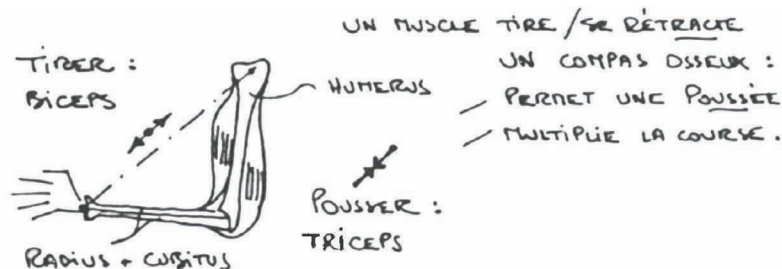 UN MUSCLE TIRE / SE RÉTRACTE
UN COMPAS OSSEUX :
PERMET UNE POUSSÉE
MULTIPLIE LA COURSE.
TIRER :
BICEPS
HUMERUS
POUSSER :
TRICEPS
RADIUS + CUBITUS